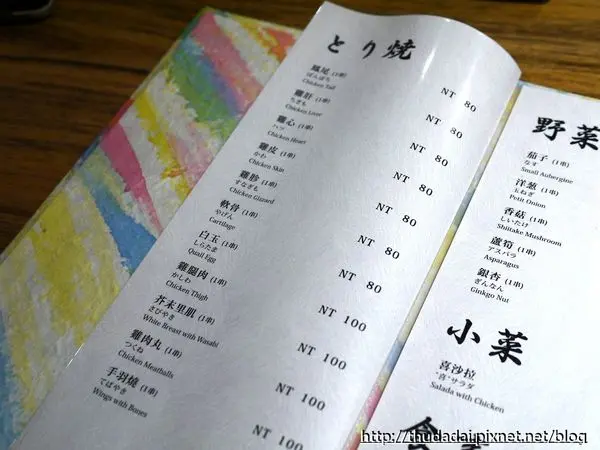 とり焼
鳳尾 (1串) NT 80
ぼんぼち
Chicken Tail
雞肝 (1串) NT 80
ちぎも
Chicken Liver
雞心 (1串) NT 80
ハツ
Chicken Heart
雞皮 (1串) NT 80
かわ
Chicken Skin
雞胗 (1串) NT 80
すなぎも
Chicken Gizzard
軟骨 (1串) NT 80
やげん
Cartilage
白玉 (1串) NT 80
しらたま
Quail Egg
雞腿肉 (1串) NT 100
かしわ
Chicken Thigh
芥末里肌 (1串) NT 100
さびやき
White Breast with Wasabi
雞肉丸 (1串) NT 100
つくね
Chicken Meatballs
手羽燒 (1串) NT 100
てばやき
Wings with Bones
野菜
茄子 (1串)
なす
Small Aubergine
洋葱 (1串)
玉ねぎ
Petit Onion
香菇 (1串)
しいたけ
Shiitake Mushroom
蘆筍 (1串)
アスパラ
Asparagus
銀杏 (1串)
ぎんなん
Ginkgo Nut
小菜
喜沙拉
"喜"サラダ
Salada with Chicken
http://thudadai.pixnet.net/blog